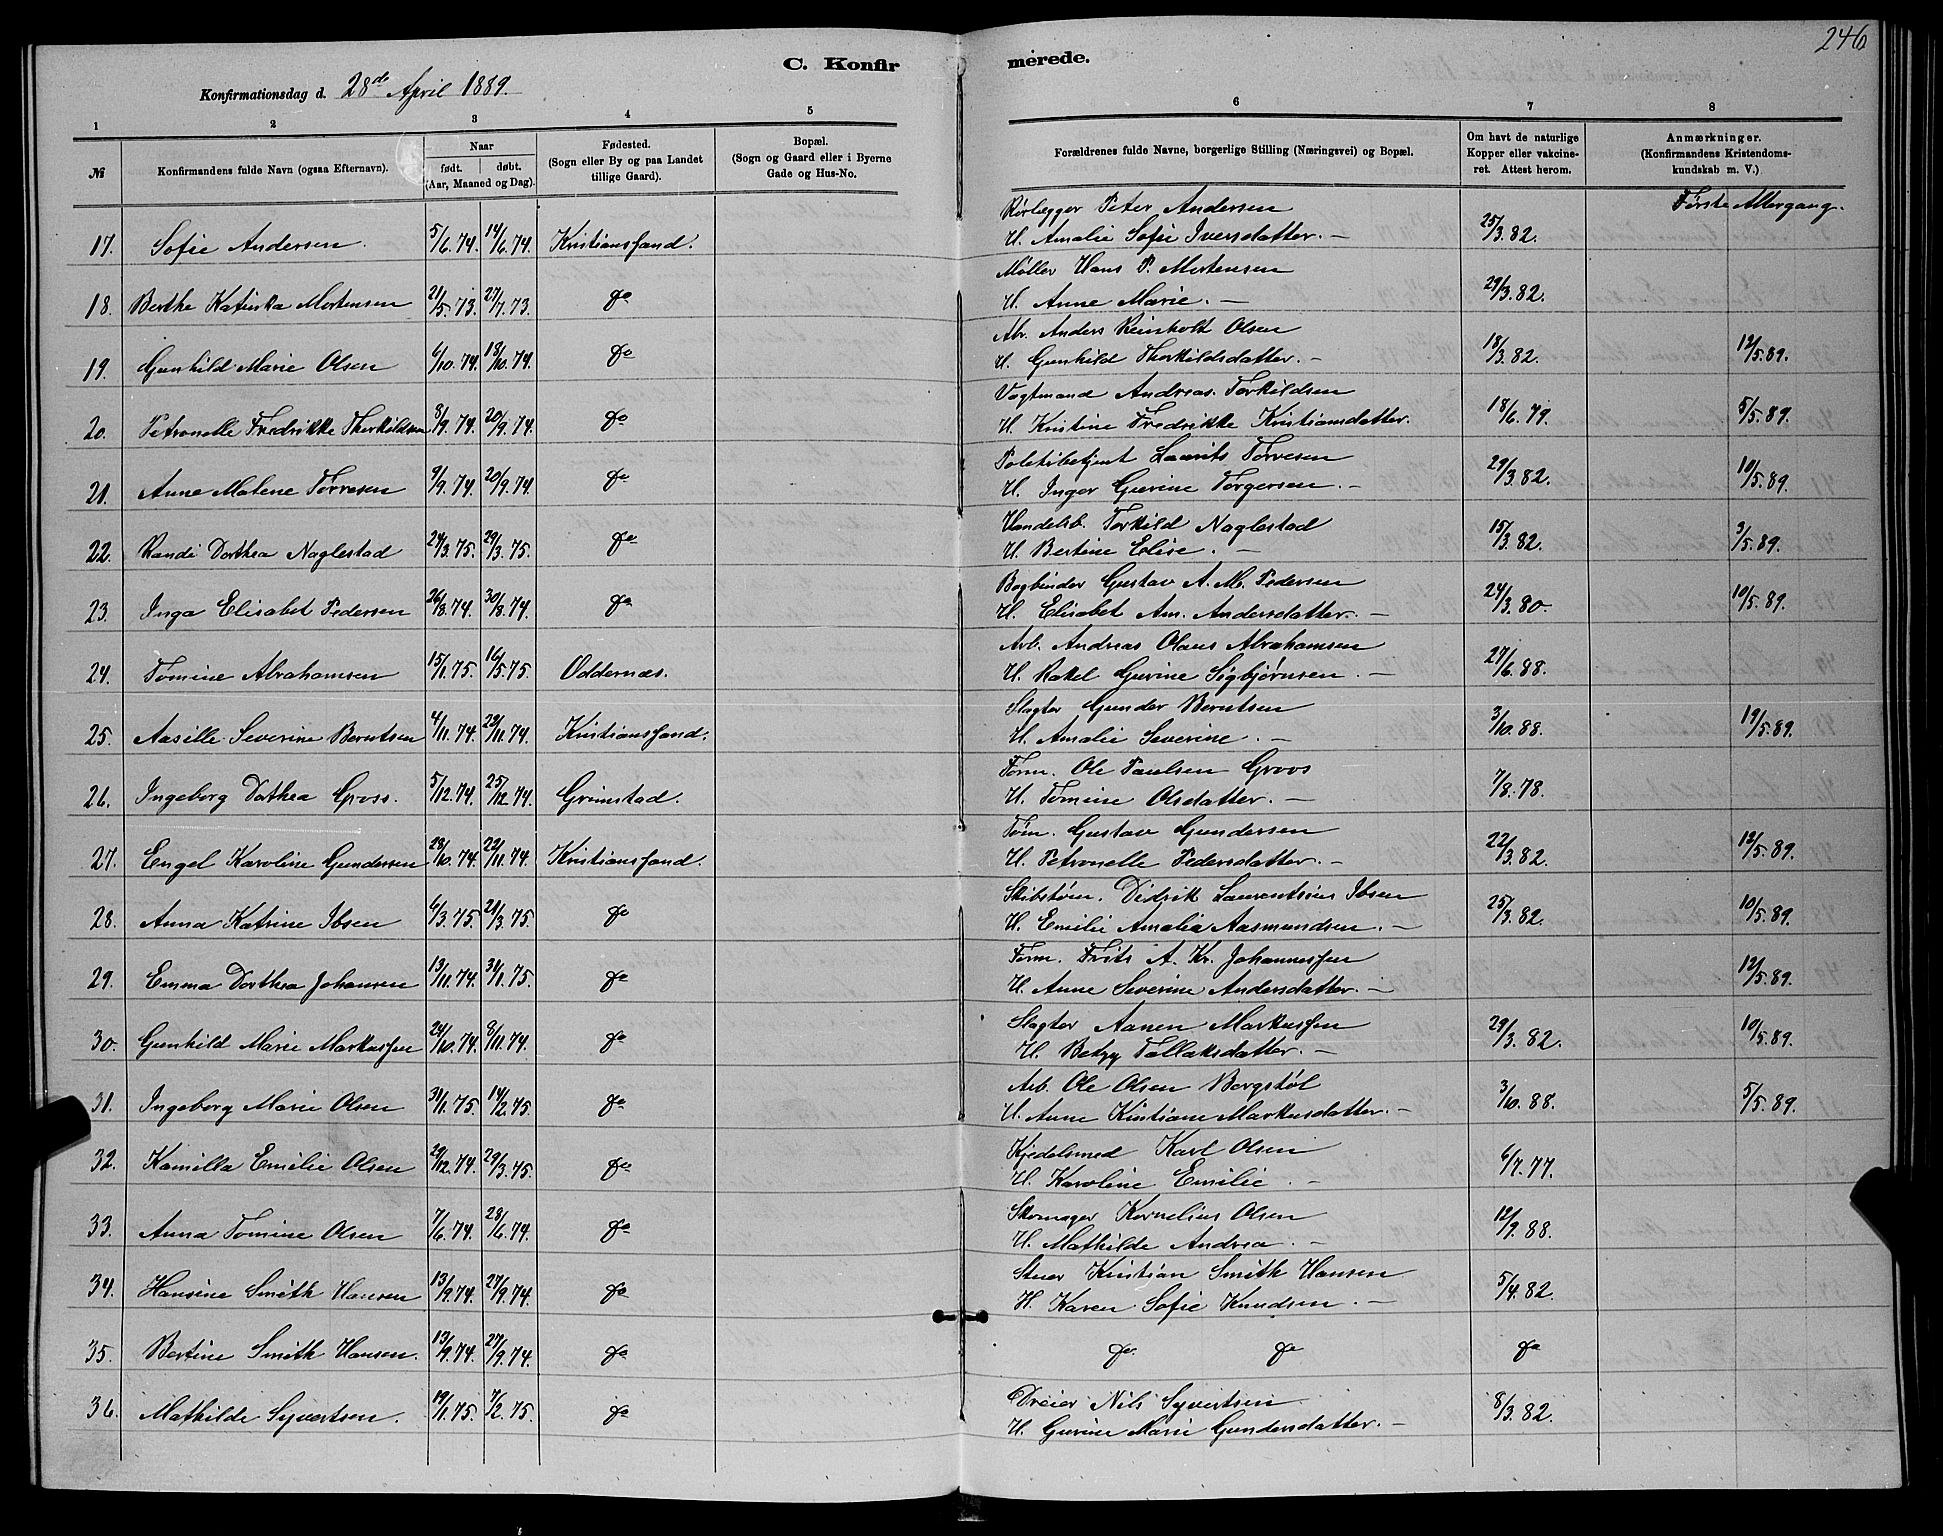 246
C. Konfirmerede.
Konfirmationsdag d. 28de April 1889.
1 2 3 4 5 6 7 8
№ Konfirmandens fulde Navn (ogsaa Efternavn). Naar født. døbt. (Aar, Maaned og Dag). Fødested. (Sogn eller By og paa Landet tillige Gaard). Bopæl. (Sogn og Gaard eller i Byerne Gade og Hus-No. Forældrenes fulde Navne, borgerlige Stilling (Næringsvei) og Bopæl. Om havt de naturlige Kopper eller vakcineret. Attest herom. Anmærkninger. (Konfirmandens Kristendomskundskab m. V.)
Rørlægger Peter Andersen Første Altergang.
17. Sofie Andersen 5/6.74. 14/6.74. Kristianssand. H. Amalie Sofie Iversdatter. — 25/3.82.
Møller Hans P. Mortensen
18. Berthe Katinka Mortensen 21/5.73. 27/7.73. do H. Anne Marie. — 29/3.82.
Arb. Anders Reinholt Olsen
19. Gunhild Marie Olsen 6/10.74. 18/10.74. do H. Gunhild Thorkildsdatter. — 18/3.82. 12/5.89.
Vogtmand Andreas Torkildsen
20. Petronelle Fredrikke Thorkildsen 8/9.74. 20/9.74. do H. Kristine Fredrikke Kristiansdatter. 18/6.79. 5/5.89.
Politibetjent Laurits Tørresen
21. Anne Malene Tørresen 9/9.74. 20/9.74. do H. Inger Gurine Torgersen. — 29/3.82. 10/5.89.
Handelsb. Torkild Naglestad
22. Randi Dorthea Naglestad 24/3.75. 29/3.75. do H. Bertine Elise. — 15/3.82. 3/5.89.
Bogbinder Gustav A. M. Pedersen
23. Inga Elisabet Pedersen 26/8.74. 30/8.74. do H. Elisabet Am. Andersdatter. — 24/3.80. 10/5.89.
Arb. Andreas Olaus Abrahamsen
24. Tomine Abrahamsen 15/1.75. 16/5.75. Oddernæs. H. Rakel Gurine Sigbjørnsen. — 27/6.88.
Slagter Gunder Berntsen
25. Aasille Severine Berntsen 4/11.74. 22/11.74. Kristianssand. H. Amalie Severine. — 3/10.88. 19/5.89.
Tøm. Ole Paulsen Groos
26. Ingeborg Dothea Gross. 5/12.74. 25/12.74. Grimstad. H. Tomine Olsdatter. — 7/8.78.
Tøm. Gustav Gundersen
27. Engel Karoline Gundersen 28/10.74. 22/11.74. Kristianssand. H. Petronelle Pedersdatter. — 22/3.82. 12/5.89.
Skibstøm. Didrik Laurentsius Ibsen
28. Anna Katrine Ibsen 6/3.75. 21/3.75. do H. Emilie Amalia Aasmundsen. — 25/3.82. 10/5.89.
Tøm. Frits A. Kr. Johannessen
29. Emma Dorthea Johansen 13/11.74. 31/1.75. do H. Anne Severine Andersdatter. — 12/5.89.
Slagter Aanen Markussen
30. Gunhild Marie Markussen 24/10.74. 8/11.74. do H. Betzy Tallaksdatter. — 29/3.82. 10/5.89.
Arb. Ole Olsen Bergstøl
31. Ingeborg Marie Olsen 31/1.75. 14/2.75. do H. Anne Kristiane Markusdatter. — 3/10.88. 5/5.89.
Kjedelsmed Karl Olsen
32. Kamilla Emilie Olsen 29/12.74. 29/3.75. do H. Karoline Emilie. — 6/7.77.
Skomager Kornelius Olsen
33. Anna Tomine Olsen 7/6.74. 28/6.74. do H. Mathilde Andrea. — 12/9.88.
Stuer Kristian Smith Hansen
34. Hansine Smith Hansen 13/9.74. 27/9.74. do H. Karen Sofie Knudsen. — 5/4.82.
35. Bertine Smith Hansen. 13/9.74. 27/9.74. do do do do
Dreier Nils Syvertsen
36. Mathilde Syvertsen. 19/1.75. 7/2.75. do H. Gurine Marie Gundersdatter. — 8/3.82.